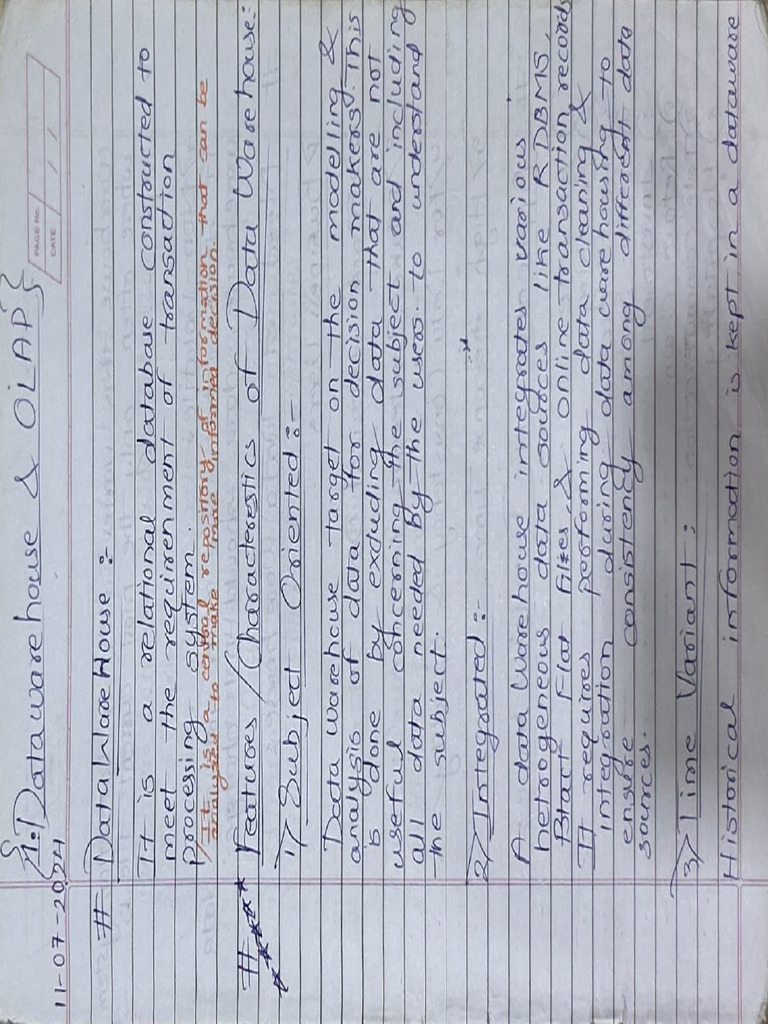 {1: Dataware house & OLAP}
PAGE NO.
DATE
11-07-2024
# Data Ware House :-
It is a relational database constructed to
meet the requirenment of transaction
Procesing system.
It is a central repository of information that can be
analysed to make more informed decision.
# Features / Characterestics of Data Warehouse:
1) Subject Oriented :-
Data warehouse target on the modelling &
analysis of data for decision makers. This
is done by excluding data that are not
useful concerning the subject and including
all data needed by the users to understand
the subject.
2) Integrated :-
A data Warehouse integrates various
hetrogeneous data sources like RDBMS,
Flat files, & online transaction records
It requires performing data cleaning &
integration during data warehousing to
ensure consistency among different data
sources.
3) Time Variant :
Historical information is kept in a dataware